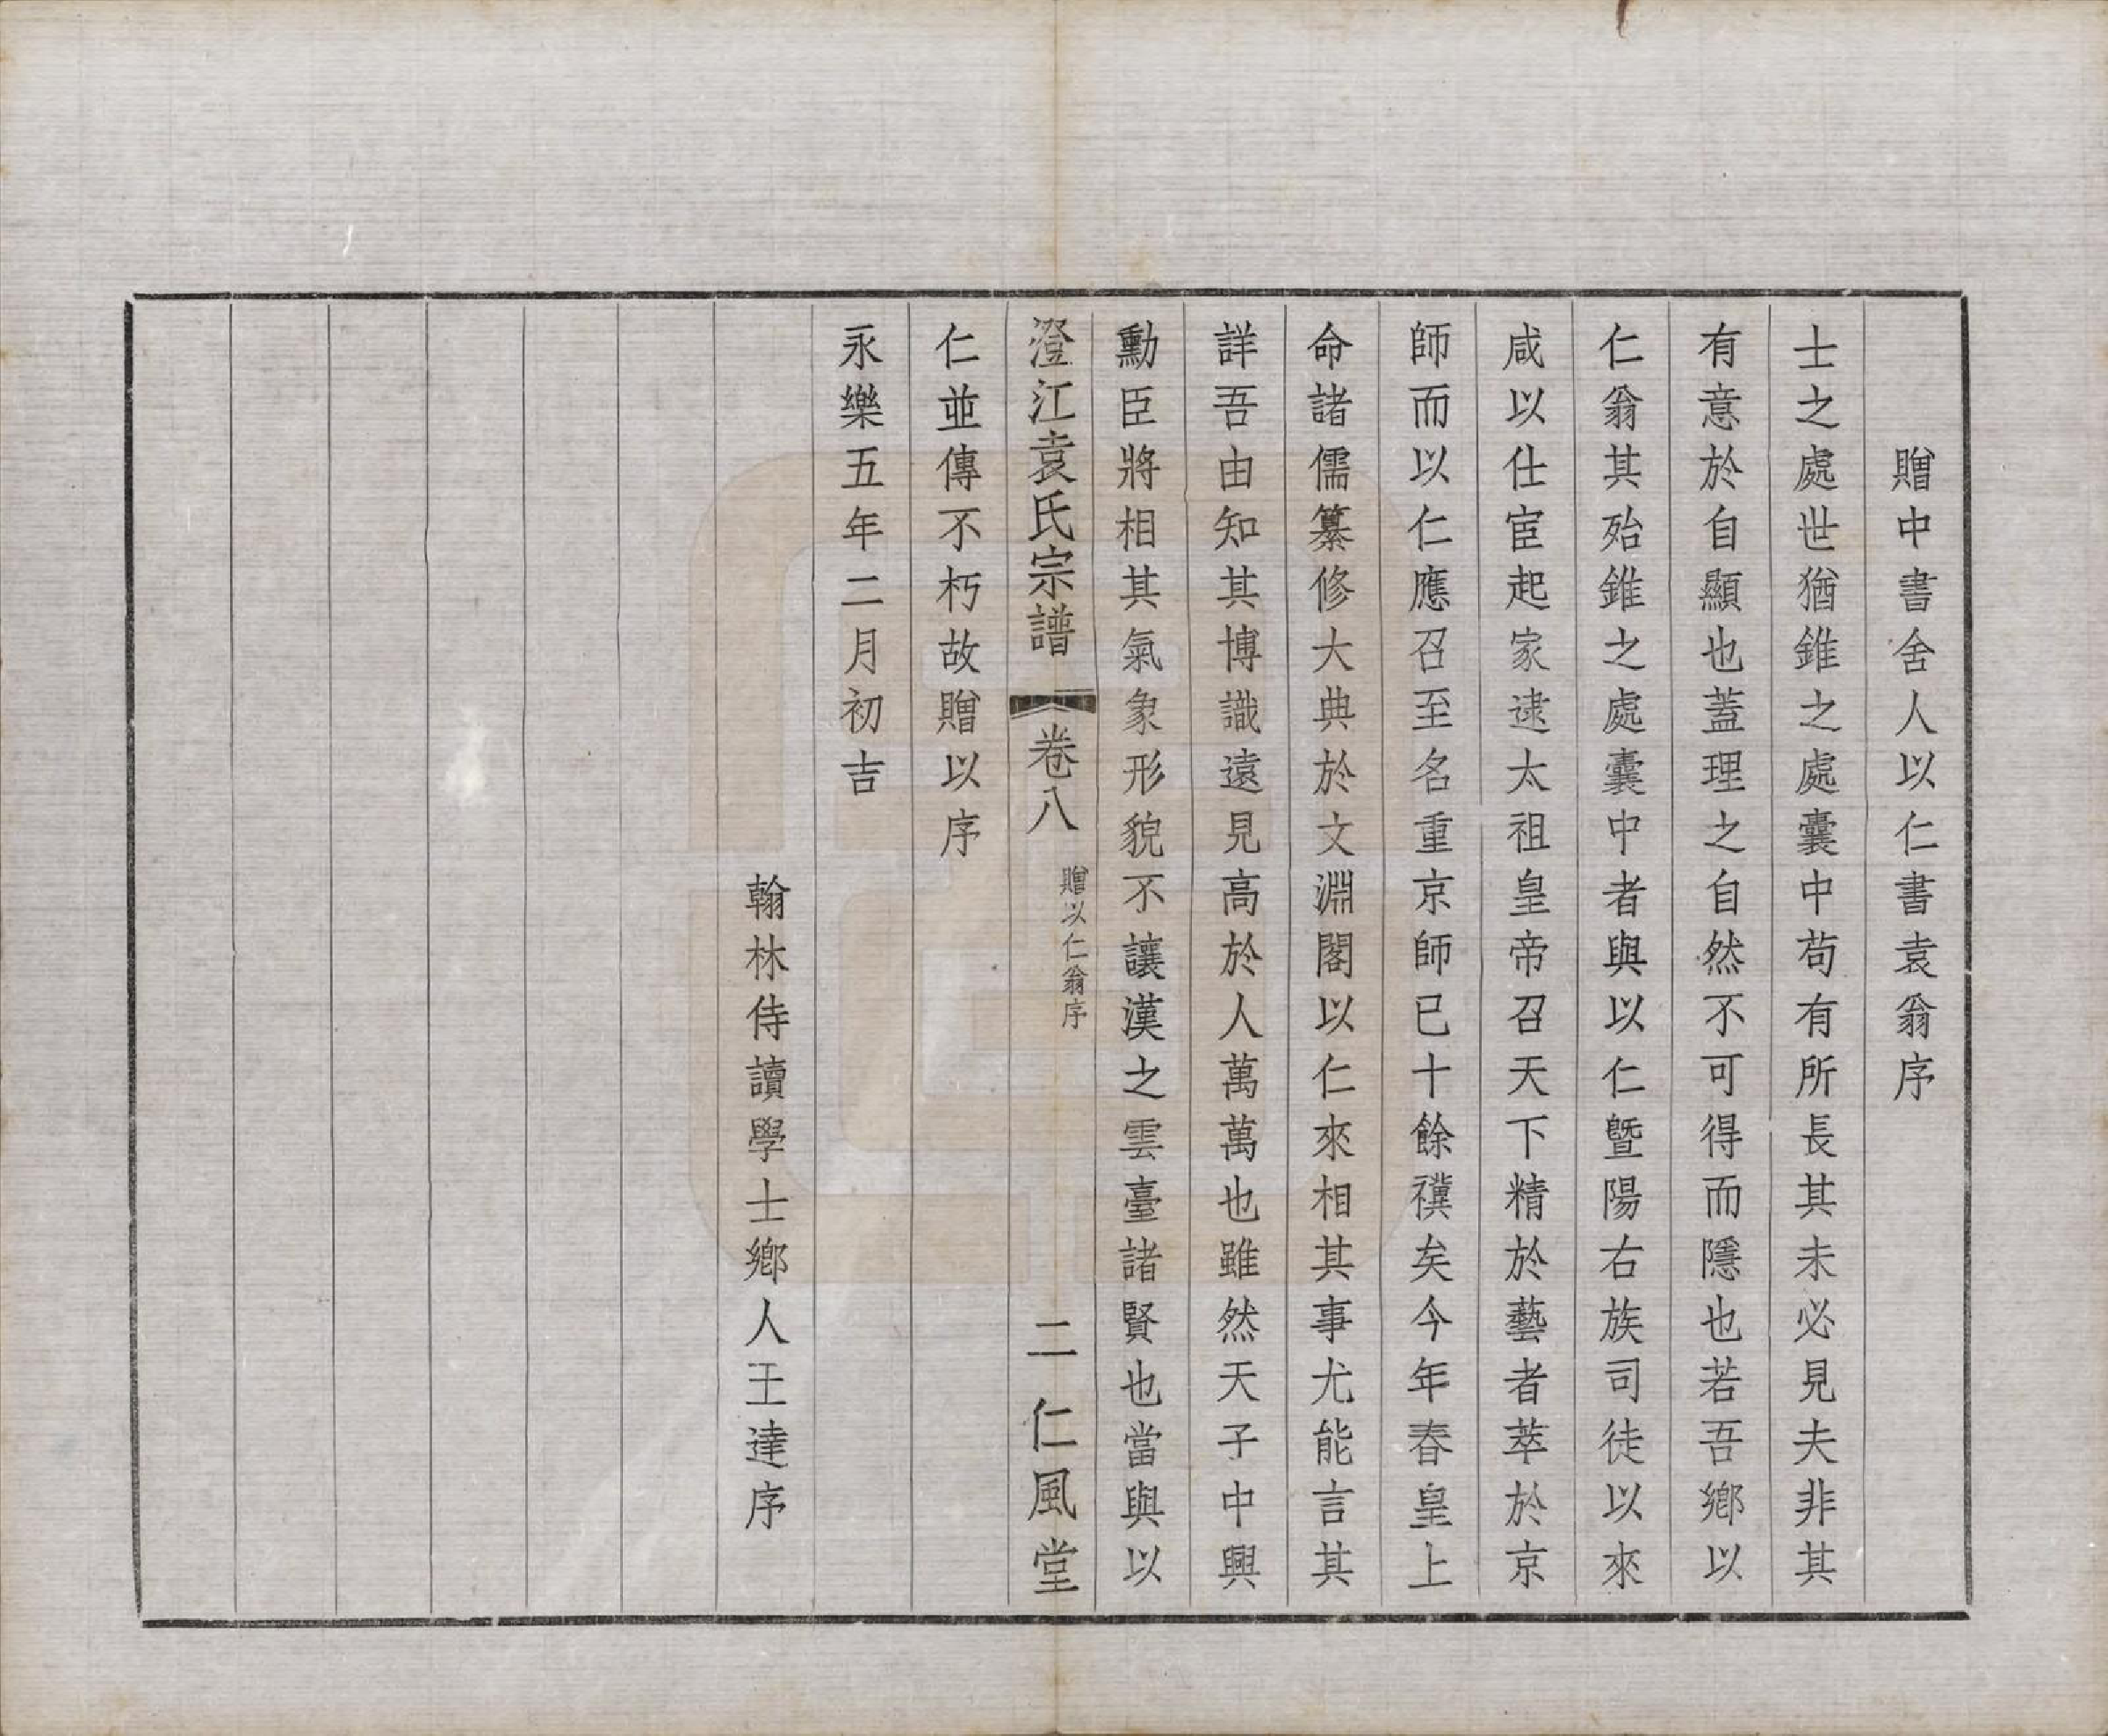 贈中書舍人以仁書袁翁序
士之處世猶錐之處囊中苟有所長其未必見夫非其
有意於自顯也蓋理之自然不可得而隱也若吾鄉以
仁翁其殆錐之處囊中者與以仁曁陽右族司徒以來
咸以仕宦起家逮太祖皇帝召天下精於藝者萃於京
師而以仁應召至名重京師已十餘禩矣今年春皇上
命諸儒纂修大典於文淵閣以仁來相其事尤能言其
詳吾由知其博識遠見高於人萬萬也雖然天子中興
勳臣將相其氣象形貌不讓漢之雲臺諸賢也當與以
澄江袁氏宗譜 卷八 贈以仁翁序 二 仁風堂
仁並傳不朽故贈以序
永樂五年二月初吉
翰林侍讀學士鄉人王達序